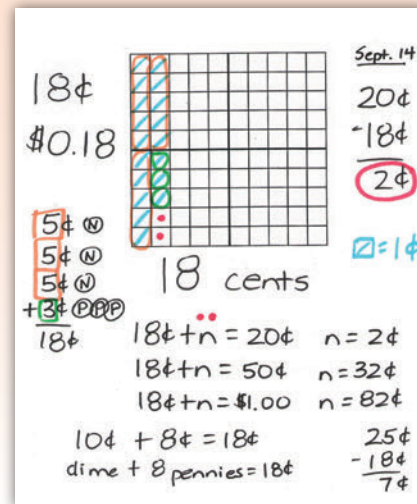 Sept. 14
18¢
$0.18
20¢
-18¢
2¢
= 1¢
5¢ N
5¢ N
5¢ N
+3¢ PPP
18¢
18 cents
18¢+n = 20¢ n = 2¢
18¢+n = 50¢ n = 32¢
18¢+n = $1.00 n = 82¢
10¢ + 8¢ = 18¢
dime + 8 pennies = 18¢
25¢
-18¢
7¢